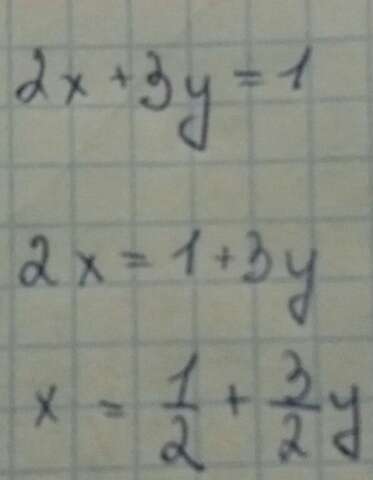 2x + 3y = 1
2x = 1 + 3y
x = 1/2 + 3/2 y